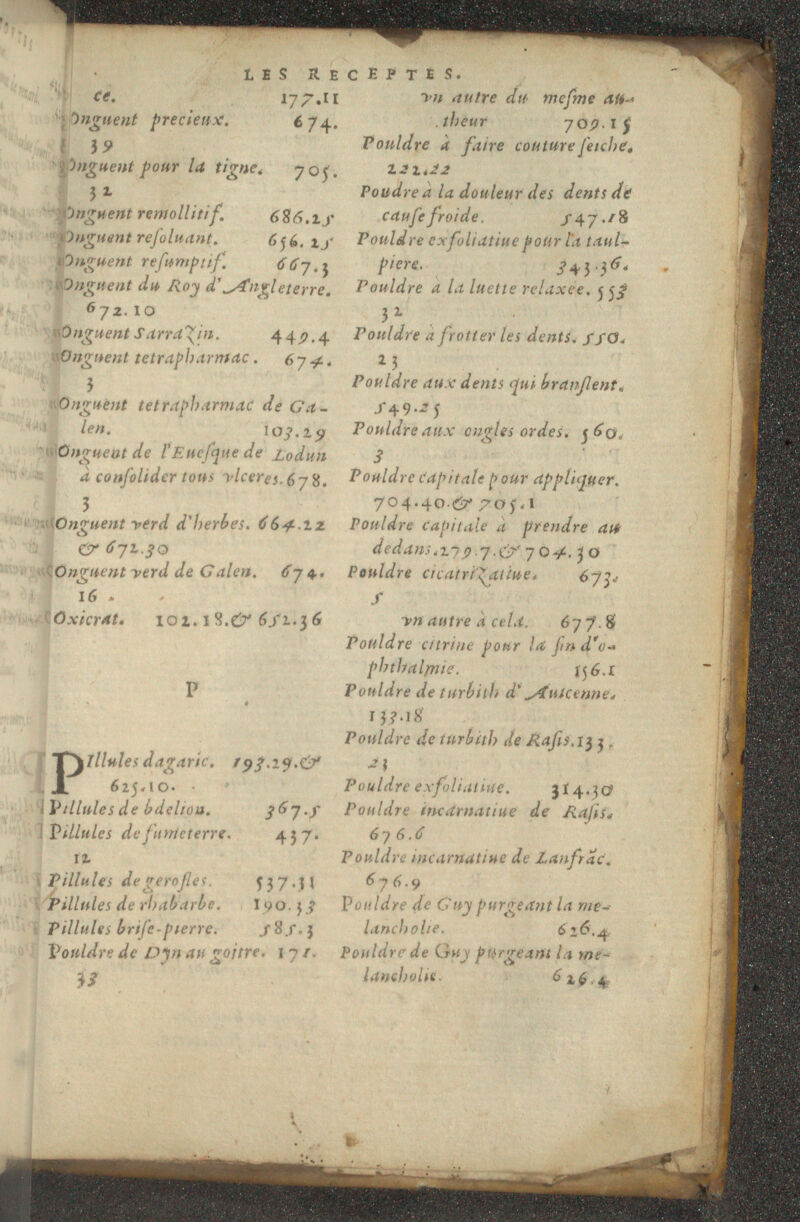 LES RECEPTES.
ce. 177.11
Onguent precieux. 674.
39
Onguent pour la tigne. 705.
32
Onguent remollitif. 686.25
Onguent resoluant. 656. 25
Onguent resumptif. 667.3
Onguent du Roy d'Angleterre.
672.10
Onguent Sarrazin. 449.4
Onguent tetrapharmac. 674.
3
Onguent tetrapharmac de Ga-
len. 103.29
Onguent de l'Euesque de Lodun
à consolider tous vlceres. 678.
3
Onguent verd d'herbes. 664.22
& 672.30
Onguent verd de Galen. 674.
16
Oxicrat. 102.18.& 652.36
P
PIllules dagaric. 193.29.&
625.10.
Pillules de bdelion. 367.5
Pillules de fumeterre. 437.
12
Pillules de gerofles. 537.31
Pillules de rhabarbe. 190.33
Pillules brise-pierre. 585.3
Pouldre de Dyn au goitre. 171.
33
vn autre du mesme au-
theur 709.15
Pouldre à faire couture seiche.
222.22
Poudre à la douleur des dents de
cause froide. 547.18
Pouldre exfoliatiue pour la taul-
piere. 343.36.
Pouldre à la luette relaxee. 553
32
Pouldre à frotter les dents. 550.
23
Pouldre aux dents qui branslent.
549.25
Pouldre aux ongles ordes. 560.
3
Pouldre capitale pour appliquer.
704.40.& 705.1
Pouldre capitale à prendre au
dedans.279.7.& 704.30
Pouldre cicatrizatiue. 673.
5
vn autre à cela. 677.8
Pouldre citrine pour la fin d'o-
phthalmie. 156.1
Pouldre de turbith d'Auicenne.
133.18
Pouldre de turbith de Rasis.133.
23
Pouldre exfoliatiue. 314.30
Pouldre incarnatiue de Rasis.
676.6
Pouldre incarnatiue de Lanfrãc.
676.9
Pouldre de Guy purgeant la me-
lancholie. 626.4
Pouldre de Guy purgeant la me-
lancholie. 626.4